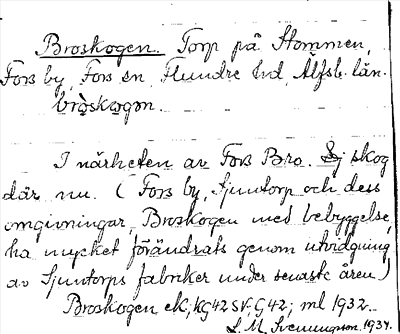 Broskogen. Torp på Stommen,
Fors by, Fors sn, Flundre hd, Älfsb. län.
bròskogən.
I närheten av Fors Bro. Ej skog
där nu. (Fors by, Sjuntorp och dess
omgivningar, Broskogen med bebyggelse,
ha mycket förändrats genom utvidgning
av Sjuntorps fabriker under senaste åren)
Broskogen eK, KG42SV, G42; ml 1932.
L. M. Svenungson. 1934.